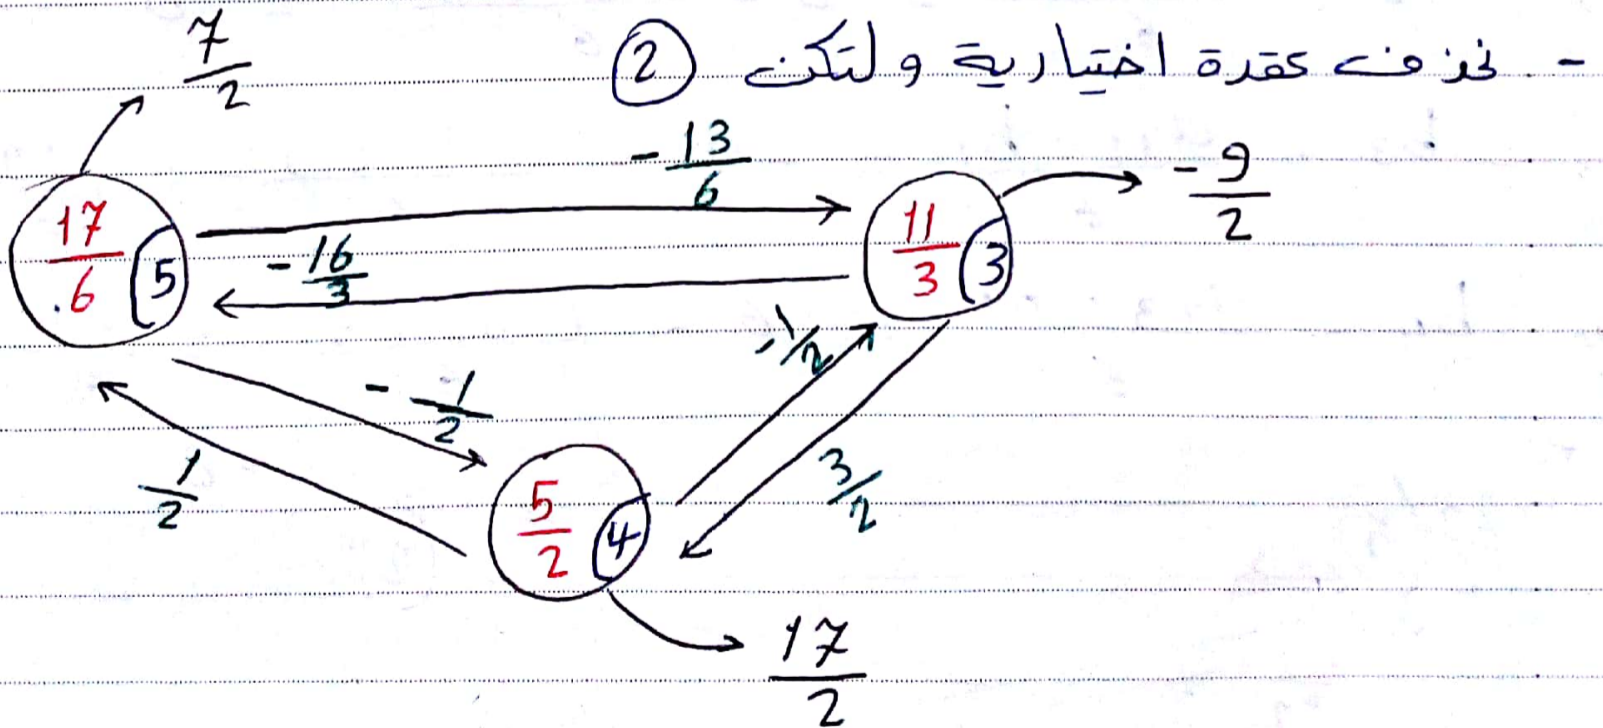 - نحذف عقدة اختيارية ولتكن ②
7/2
-13/6
-9/2
17/6 5
-16/3
11/3 3
-1/2
-1/2
1/2
3/2
5/2 4
17/2